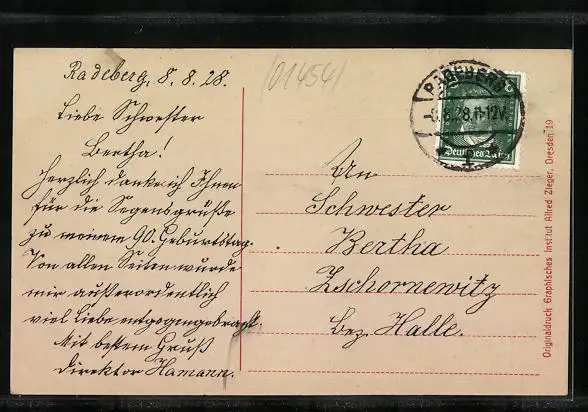 Radeberg, 8. 8. 28.
(01454)
Liebe Schwester
Bertha!
Herzlich danke ich Ihnen
für die Segensgrüße
zu meinem 90. Geburtstag.
Von allen Seiten wurde
mir außerordentlich
viel Liebe entgegengebracht.
Mit bestem Gruß
Direktor Hamann.
RADEBERG
8.28.11-12V.
Deutsches Reich
An
Schwester
Bertha
Zschornewitz
Bez. Halle.
Originaldruck Graphisches Institut Alfred Zieger, Dresden 19